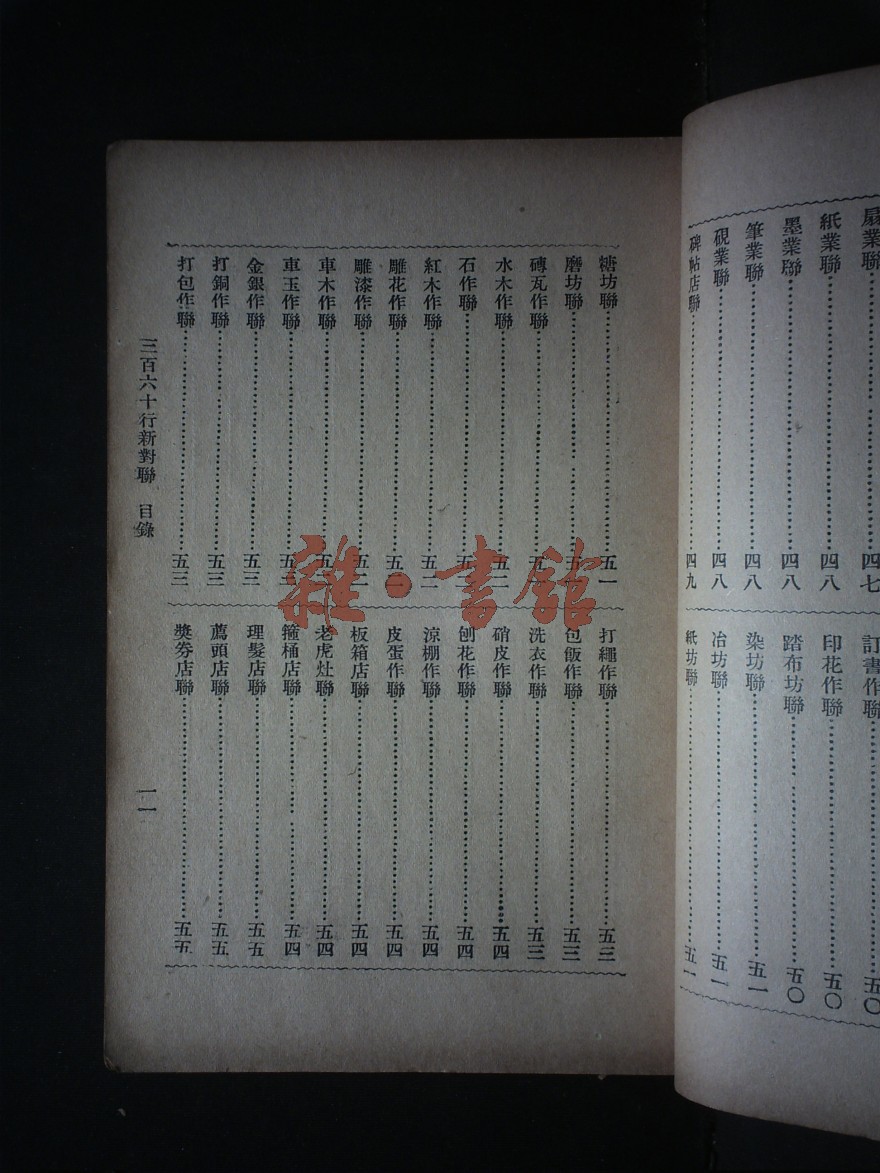 扇業聯⋯⋯四七
紙業聯⋯⋯四八
墨業聯⋯⋯四八
筆業聯⋯⋯四八
硯業聯⋯⋯四八
碑帖店聯⋯⋯四九
訂書作聯⋯⋯五〇
印花作聯⋯⋯五〇
踏布坊聯⋯⋯五〇
染坊聯⋯⋯五一
冶坊聯⋯⋯五一
紙坊聯⋯⋯五一
糖坊聯⋯⋯五一
磨坊聯⋯⋯五
磚瓦作聯⋯⋯五
水木作聯⋯⋯五二
石作聯⋯⋯五
紅木作聯⋯⋯五二
雕花作聯⋯⋯五二
雕漆作聯⋯⋯五二
車木作聯⋯⋯五
車玉作聯⋯⋯五
金銀作聯⋯⋯五三
打銅作聯⋯⋯五三
打包作聯⋯⋯五三
打繩作聯⋯⋯五三
包飯作聯⋯⋯五三
洗衣作聯⋯⋯五三
硝皮作聯⋯⋯五四
刨花作聯⋯⋯五四
涼棚作聯⋯⋯五四
皮蛋作聯⋯⋯五四
板箱店聯⋯⋯五四
老虎灶聯⋯⋯五四
箍桶店聯⋯⋯五四
理髮店聯⋯⋯五五
薦頭店聯⋯⋯五五
獎券店聯⋯⋯五五
三百六十行新對聯 目錄
一一
雜·書館